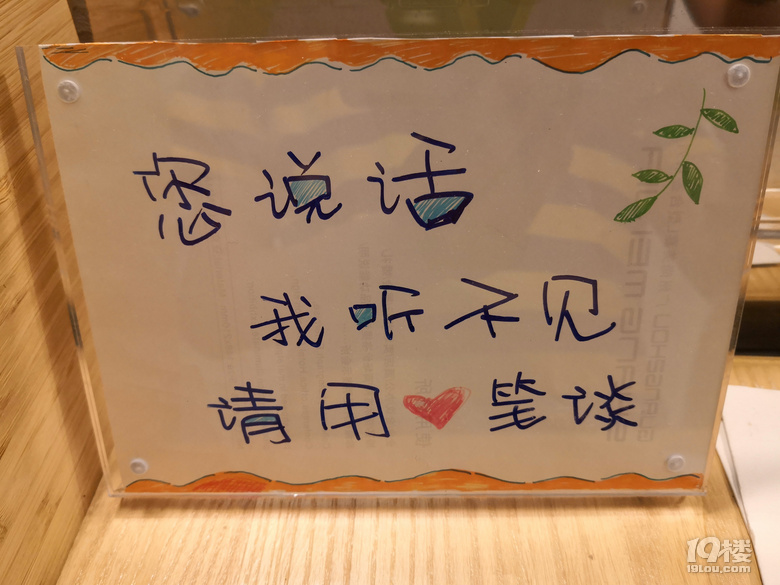 您说话
我听不见
请用❤笔谈
19楼
19lou.com